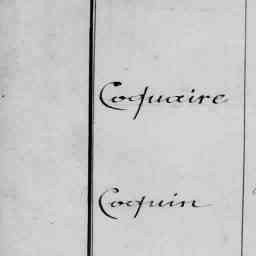 Coquaire
Coquin